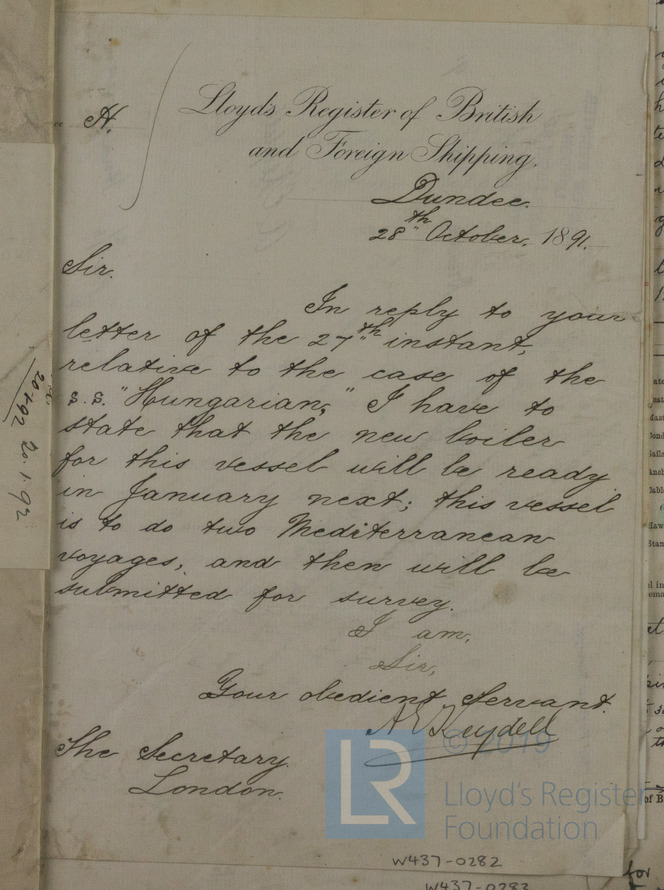 H.
Lloyds Register of British
and Foreign Shipping.
Dundee.
28th October, 1891.
Sir.
In reply to your
letter of the 27th instant,
relative to the case of the
s.s. "Hungarian," I have to
state that the new boiler
for this vessel will be ready
in January next; this vessel
is to do two Mediterranean
voyages, and then will be
submitted for survey.
I am,
Sir,
Your obedient Servant.
A E Keydell
The Secretary.
London.
20.1.92
20.1.92
© 2019
LR
Lloyd's Register
Foundation
W437-0282
W437-0283
of B
for